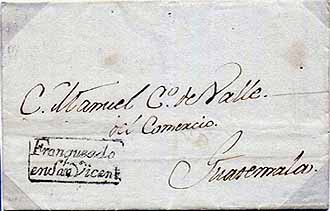 C. Manuel Cº. de Valle.
del Comercio.
Guatemala.
Franqueado
en San Vicent.